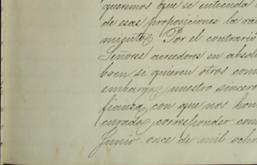 queremos que se entienda
de esas proposiciones la va
miento. Por el contrario
Señores acreedores en absol
bien se quieren otros com
embargo, nuestro sincero
fianza, con que nos hon
curado, corresponder com
Junio once de mil ocho